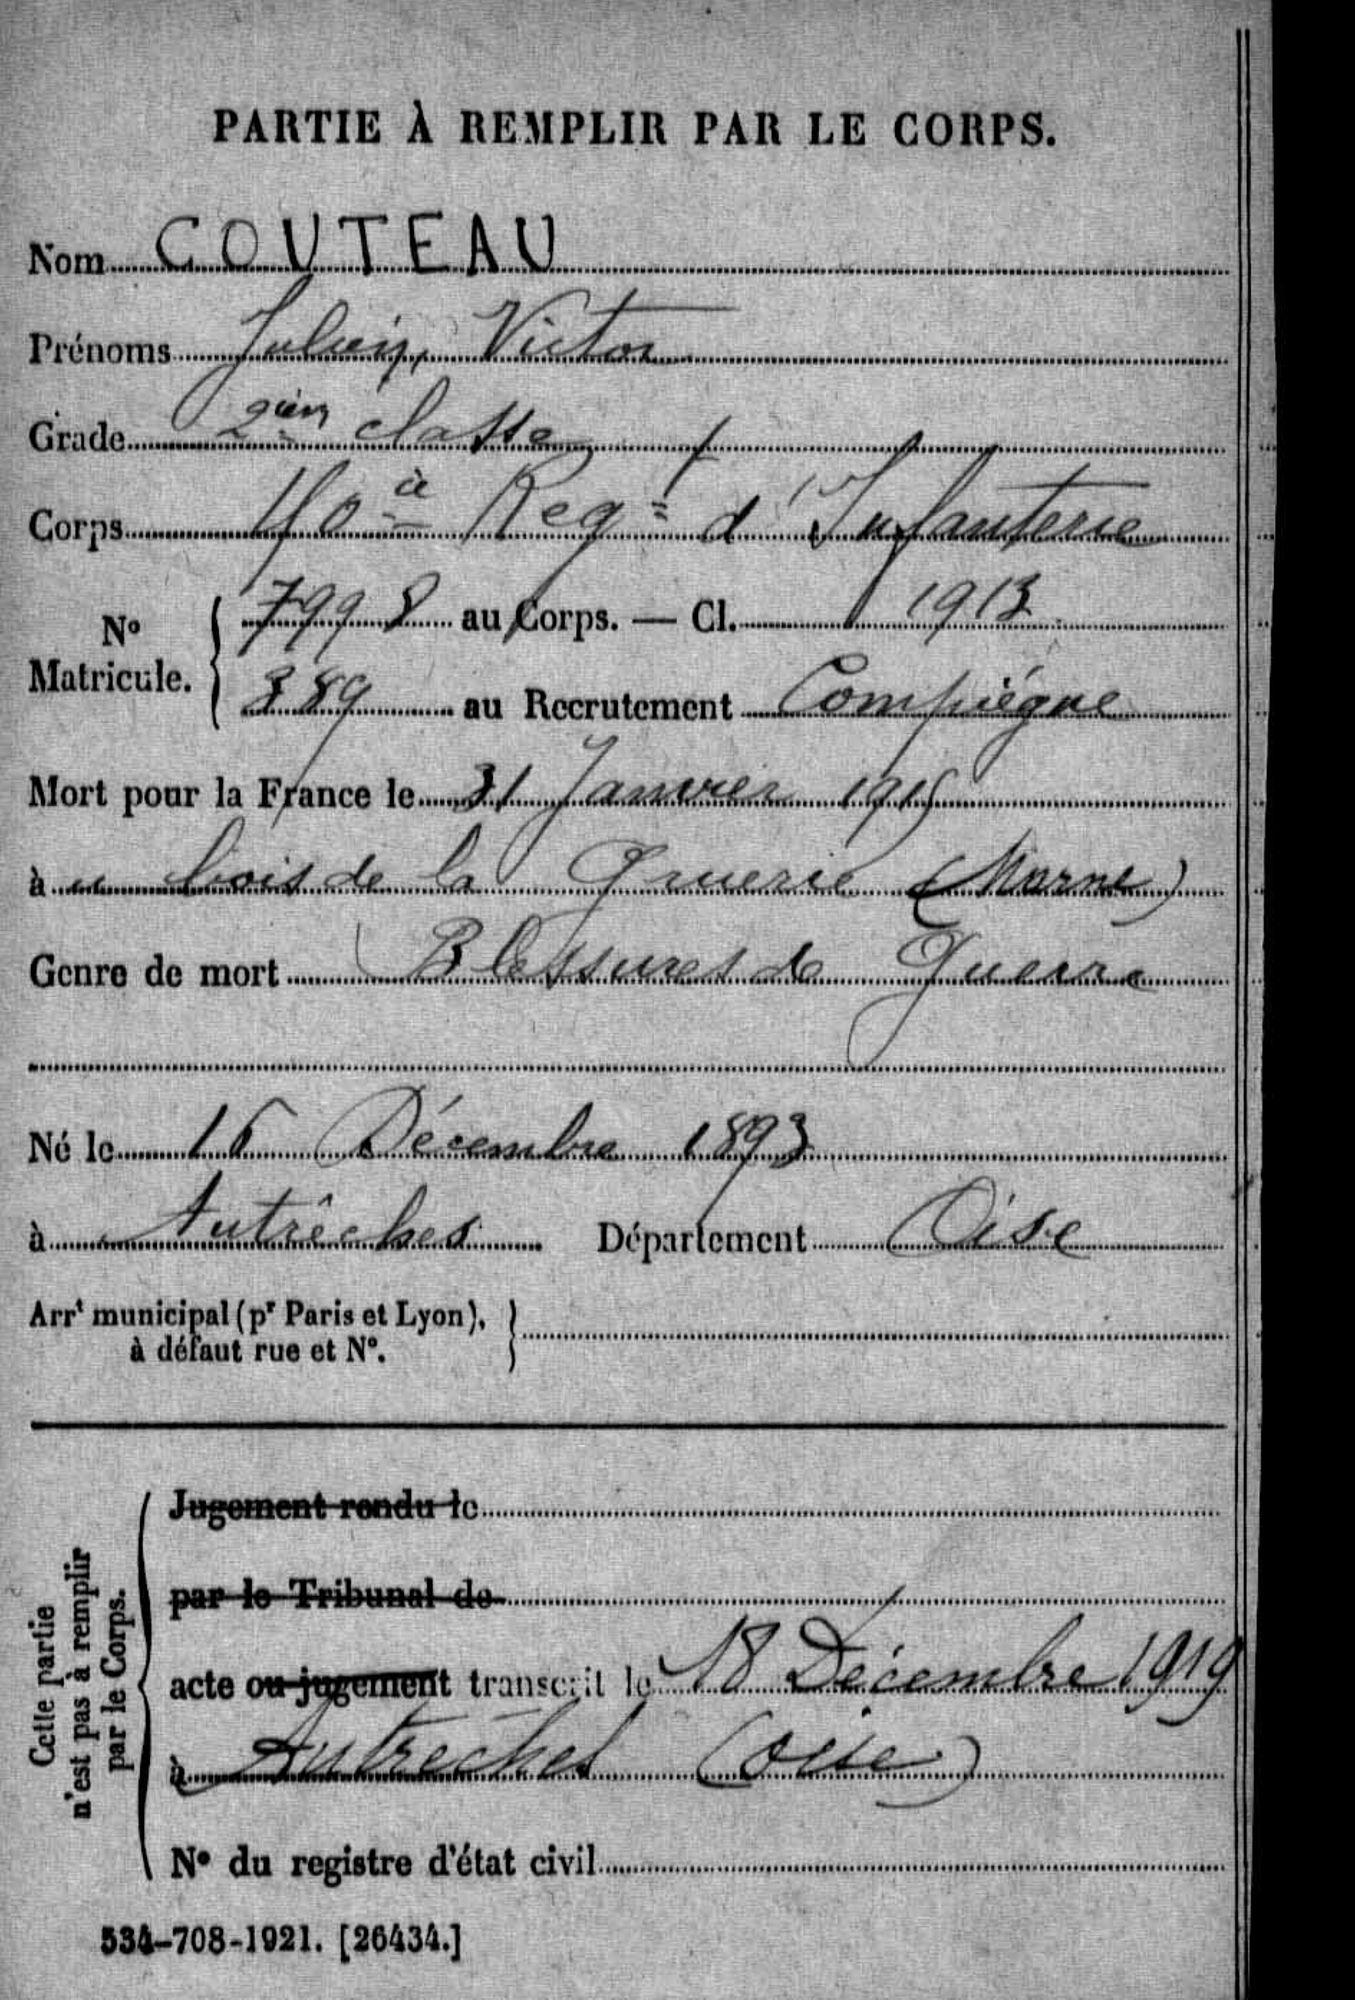 PARTIE À REMPLIR PAR LE CORPS.
Nom COUTEAU
Prénoms Julien, Victor
Grade 2ièm classe
Corps Regt d'Infanterie
No Matricule. { 7998 au Corps. — Cl. 1913
389 au Recrutement Compiégne
Mort pour la France le 31 Janvier 1915
à u bois de la Gruerie (Marne)
Genre de mort Blessures de Guerre
Né le 16 Décembre 1893
à Autrêches Département Oise
Arrt municipal (pr Paris et Lyon), }
à défaut rue et No.
Cette partie
n'est pas à remplir
par le Corps.
Jugement rendu le
par le Tribunal de
acte ou jugement transcrit le 18 Décembre 1919
à Autrêches (Oise)
No du registre d'état civil
534-708-1921. [26434.]